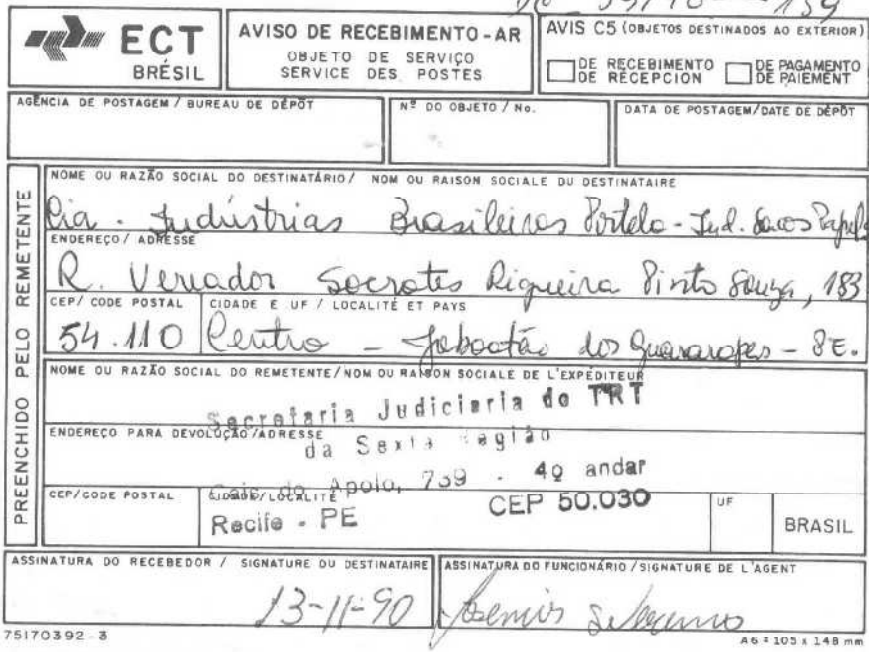 139
ECT
BRÉSIL
AVISO DE RECEBIMENTO-AR
OBJETO DE SERVIÇO
SERVICE DES POSTES
AVIS C5 (OBJETOS DESTINADOS AO EXTERIOR)
DE RECEBIMENTO
DE RÉCEPCION
DE PAGAMENTO
DE PAIEMENT
AGÊNCIA DE POSTAGEM / BUREAU DE DÉPÔT
Nº DO OBJETO / No.
DATA DE POSTAGEM/DATE DE DÉPÔT
PREENCHIDO PELO REMETENTE
NOME OU RAZÃO SOCIAL DO DESTINATÁRIO / NOM OU RAISON SOCIALE DU DESTINATAIRE
Cia. Indústrias Brasileiras Portela - Ind. Sacos Papel
ENDEREÇO / ADRESSE
R. Vereador Socrotes Rigueira Pinto Souza, 183
CEP/ CODE POSTAL
CIDADE E UF / LOCALITÉ ET PAYS
54.110 Centro - Jaboatão dos Guararapes - PE.
NOME OU RAZÃO SOCIAL DO REMETENTE/NOM OU RAISON SOCIALE DE L'EXPÉDITEUR
Secretaria Judiciaria do TRT
ENDEREÇO PARA DEVOLUÇÃO/ADRESSE
da Sexta Região
Cais do Apolo, 739 - 4º andar
CEP/CODE POSTAL
CIDADE/LOCALITÉ
CEP 50.030
Recife - PE
UF
BRASIL
ASSINATURA DO RECEBEDOR / SIGNATURE DU DESTINATAIRE
ASSINATURA DO FUNCIONÁRIO / SIGNATURE DE L'AGENT
13-11-90
75170392-3
A6 = 105 x 148 mm